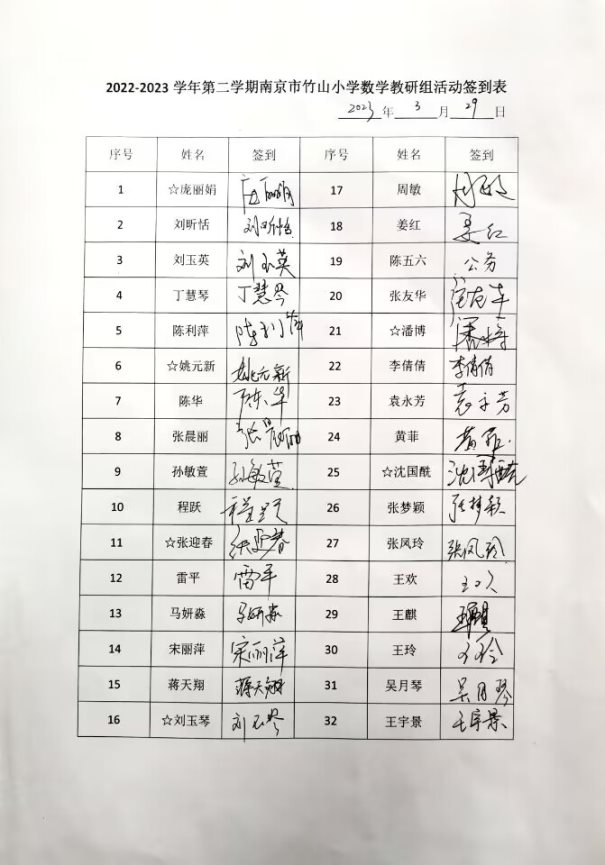 2022-2023 学年第二学期南京市竹山小学数学教研组活动签到表
2023 年 3 月 29 日
序号 姓名 签到 序号 姓名 签到
1 ☆庞丽娟 庞丽娟 17 周敏 周敏
2 刘昕恬 刘昕恬 18 姜红 姜红
3 刘玉英 刘玉英 19 陈五六 公务
4 丁慧琴 丁慧琴 20 张友华
5 陈利萍 陈利萍 21 ☆潘博 潘博
6 ☆姚元新 姚元新 22 李倩倩 李倩倩
7 陈华 陈华 23 袁永芳 袁永芳
8 张晨丽 张晨丽 24 黄菲 黄菲
9 孙敏萱 孙敏萱 25 ☆沈国酰 沈国酰
10 程跃 程跃 26 张梦颖 张梦颖
11 ☆张迎春 张迎春 27 张凤玲 张凤玲
12 雷平 雷平 28 王欢 王欢
13 马妍淼 马妍淼 29 王麒 王麒
14 宋丽萍 宋丽萍 30 王玲 王玲
15 蒋天翔 蒋天翔 31 吴月琴 吴月琴
16 ☆刘玉琴 刘玉琴 32 王宇景 王宇景